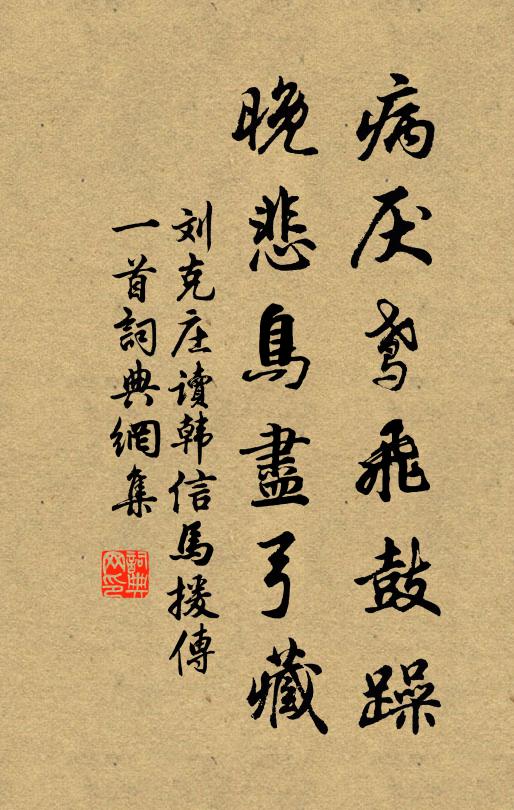 病厌鸢飛鼓躁
晚悲鳥盡弓藏
刘克庄读韩信馬援傳
一首詞典網集
詞典
网印